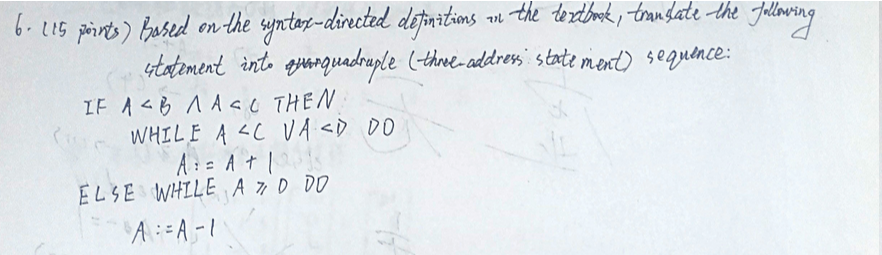 6. (15 points) Based on the syntax-directed definitions in the textbook, translate the following
statement into quadruple (three-address statement) sequence:
IF A < B ∧ A < C THEN
WHILE A < C ∨ A < D DO
A := A + 1
ELSE WHILE A ≥ D DO
A := A - 1